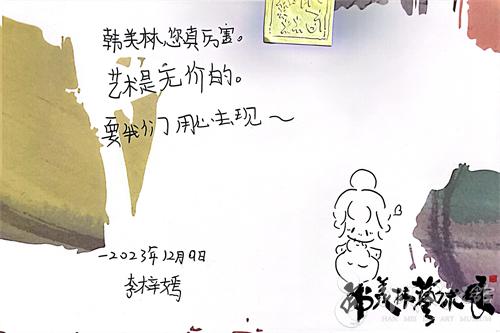 韩美林,您真厉害。
艺术是无价的。
要我们用心去现~
-2023年12月9日
李梓嫣
韩美林艺术展